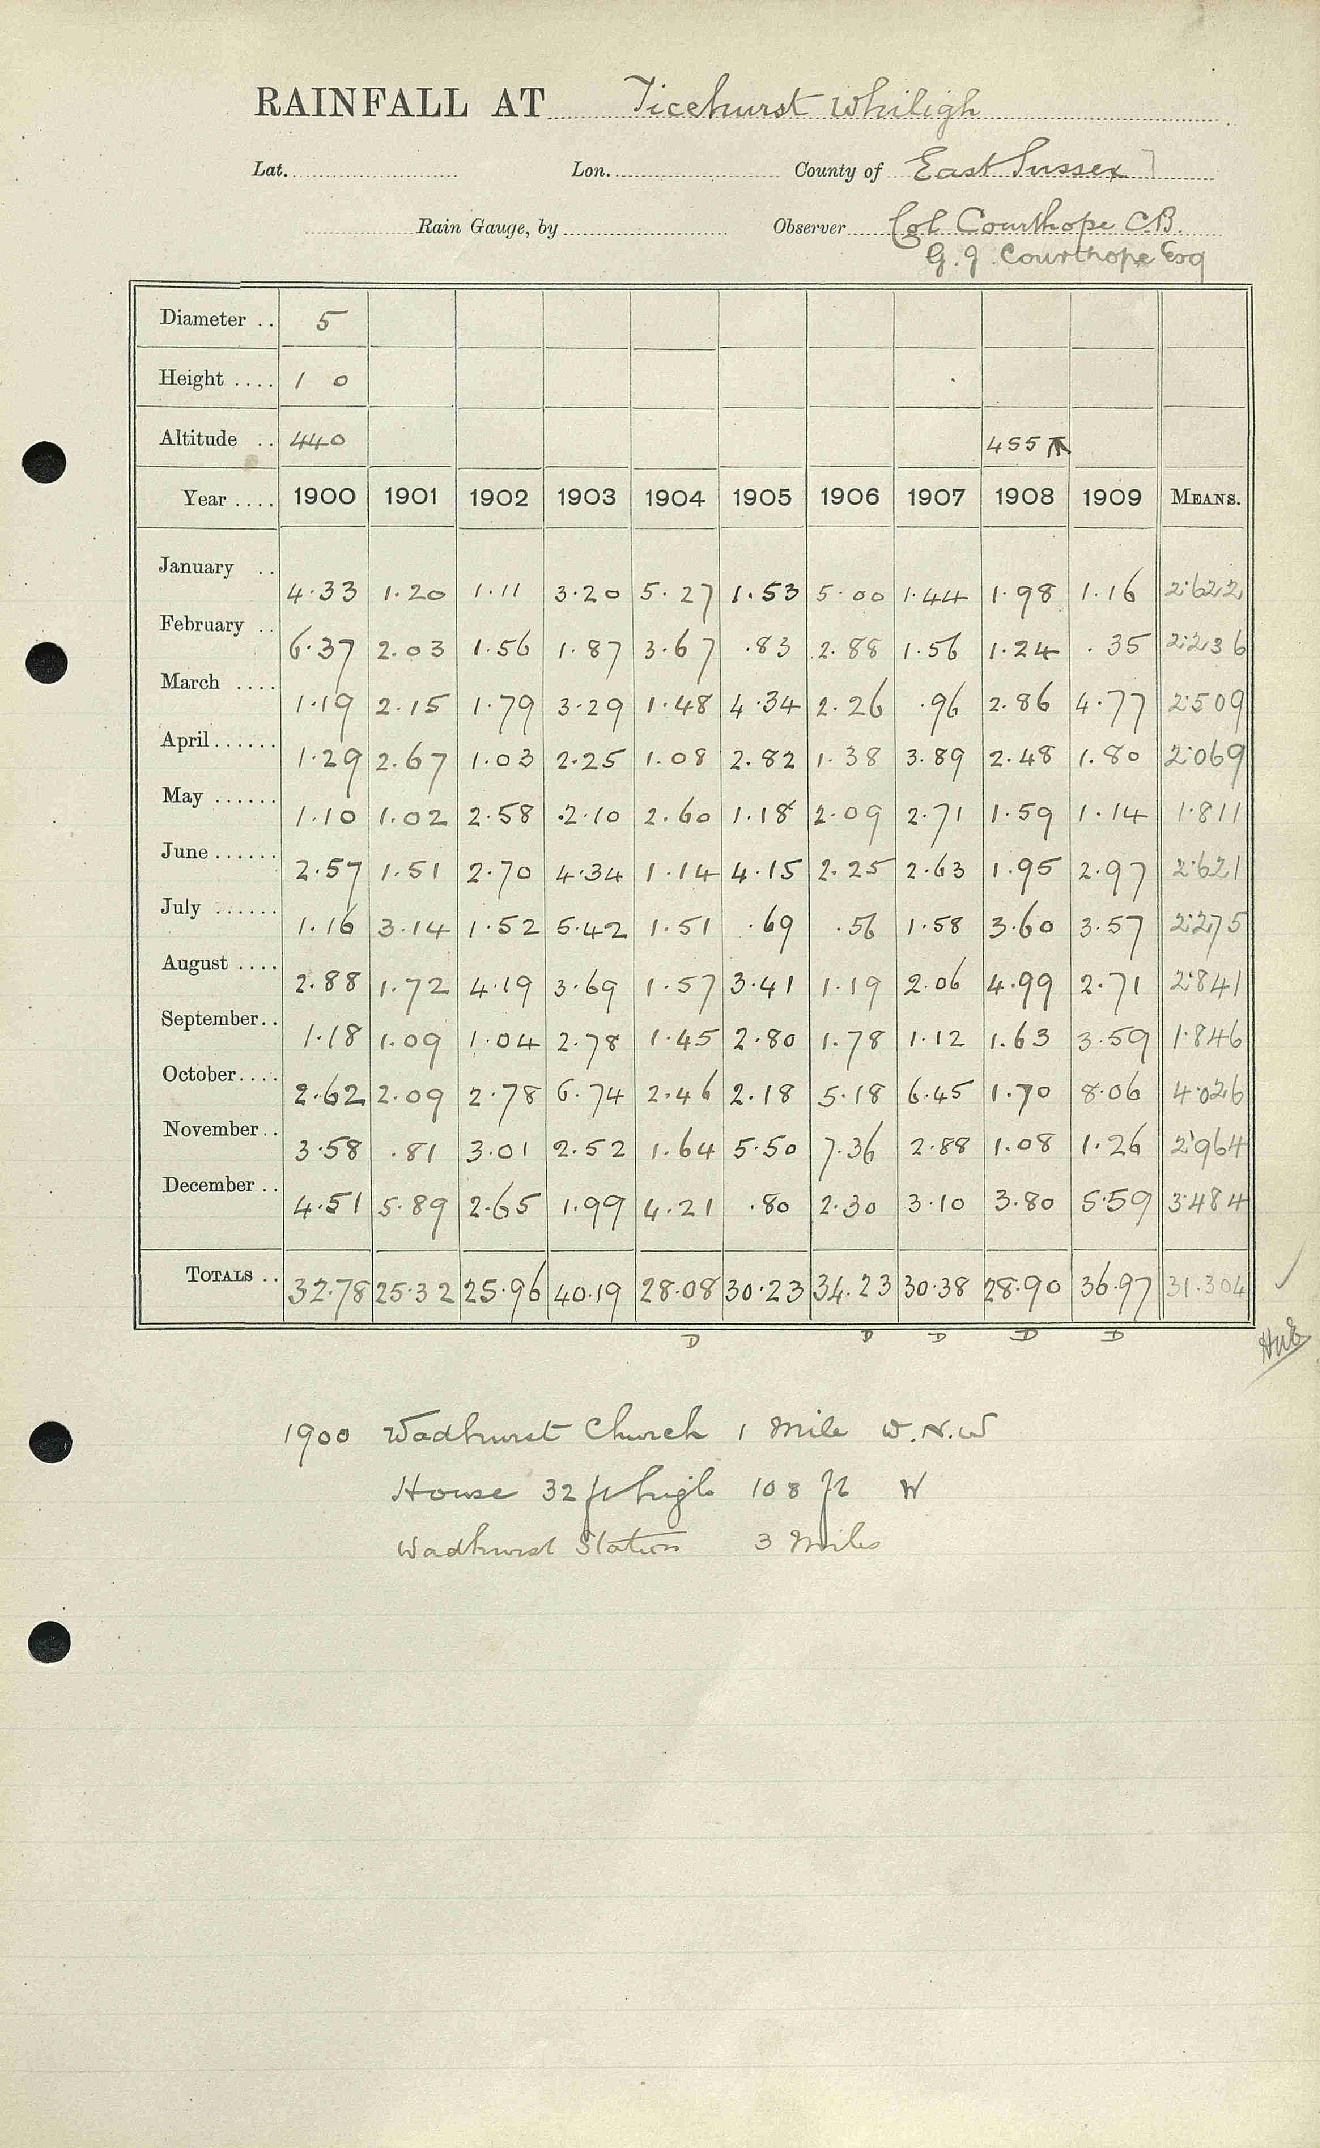 RAINFALL AT Ticehurst Whiligh
Lat. Lon. County of East Sussex
Rain Gauge, by Observer Col Courthope C.B.
G. J Courthope Esq
Diameter .. 5
Height .... 1 0
Altitude .. 440 455
Year .... 1900 1901 1902 1903 1904 1905 1906 1907 1908 1909 MEANS.
January .. 4.33 1.20 1.11 3.20 5.27 1.53 5.00 1.44 1.98 1.16 2.622
February .. 6.37 2.03 1.56 1.87 3.67 .83 2.88 1.56 1.24 .35 2.236
March .... 1.19 2.15 1.79 3.29 1.48 4.34 2.26 .96 2.86 4.77 2.509
April...... 1.29 2.67 1.03 2.25 1.08 2.82 1.38 3.89 2.48 1.80 2.069
May ...... 1.10 1.02 2.58 .2.10 2.60 1.18 2.09 2.71 1.59 1.14 1.811
June...... 2.57 1.51 2.70 4.34 1.14 4.15 2.25 2.63 1.95 2.97 2.621
July ...... 1.16 3.14 1.52 5.42 1.51 .69 .56 1.58 3.60 3.57 2.275
August .... 2.88 1.72 4.19 3.69 1.57 3.41 1.19 2.06 4.99 2.71 2.841
September.. 1.18 1.09 1.04 2.78 1.45 2.80 1.78 1.12 1.63 3.59 1.846
October.... 2.62 2.09 2.78 6.74 2.46 2.18 5.18 6.45 1.70 8.06 4.026
November.. 3.58 .81 3.01 2.52 1.64 5.50 7.36 2.88 1.08 1.26 2.964
December .. 4.51 5.89 2.65 1.99 4.21 .80 2.30 3.10 3.80 5.59 3.484
TOTALS .. 32.78 25.32 25.96 40.19 28.08 30.23 34.23 30.38 28.90 36.97 31.304
D D D D D
1900 Wadhurst Church 1 Mile W.N.W
House 32 ft high 108 ft W
Wadhurst Station 3 Miles